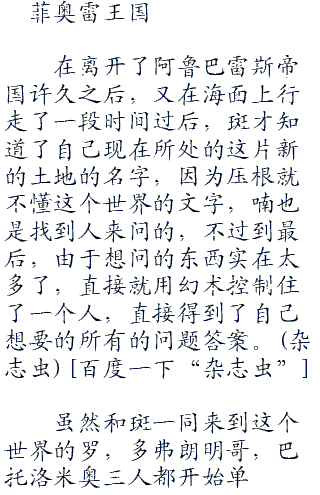 菲奥雷王国
在离开了阿鲁巴雷斯帝
国许久之后，又在海面上行
走了一段时间过后，斑才知
道了自己现在所处的这片新
的土地的名字，因为压根就
不懂这个世界的文字，喃也
是找到人来问的，不过到最
后，由于想问的东西实在太
多了，直接就用幻术控制住
了一个人，直接得到了自己
想要的所有的问题答案。(杂
志虫)[百度一下“杂志虫”]
虽然和斑一同来到这个
世界的罗，多弗朗明哥，巴
托洛米奥三人都开始单